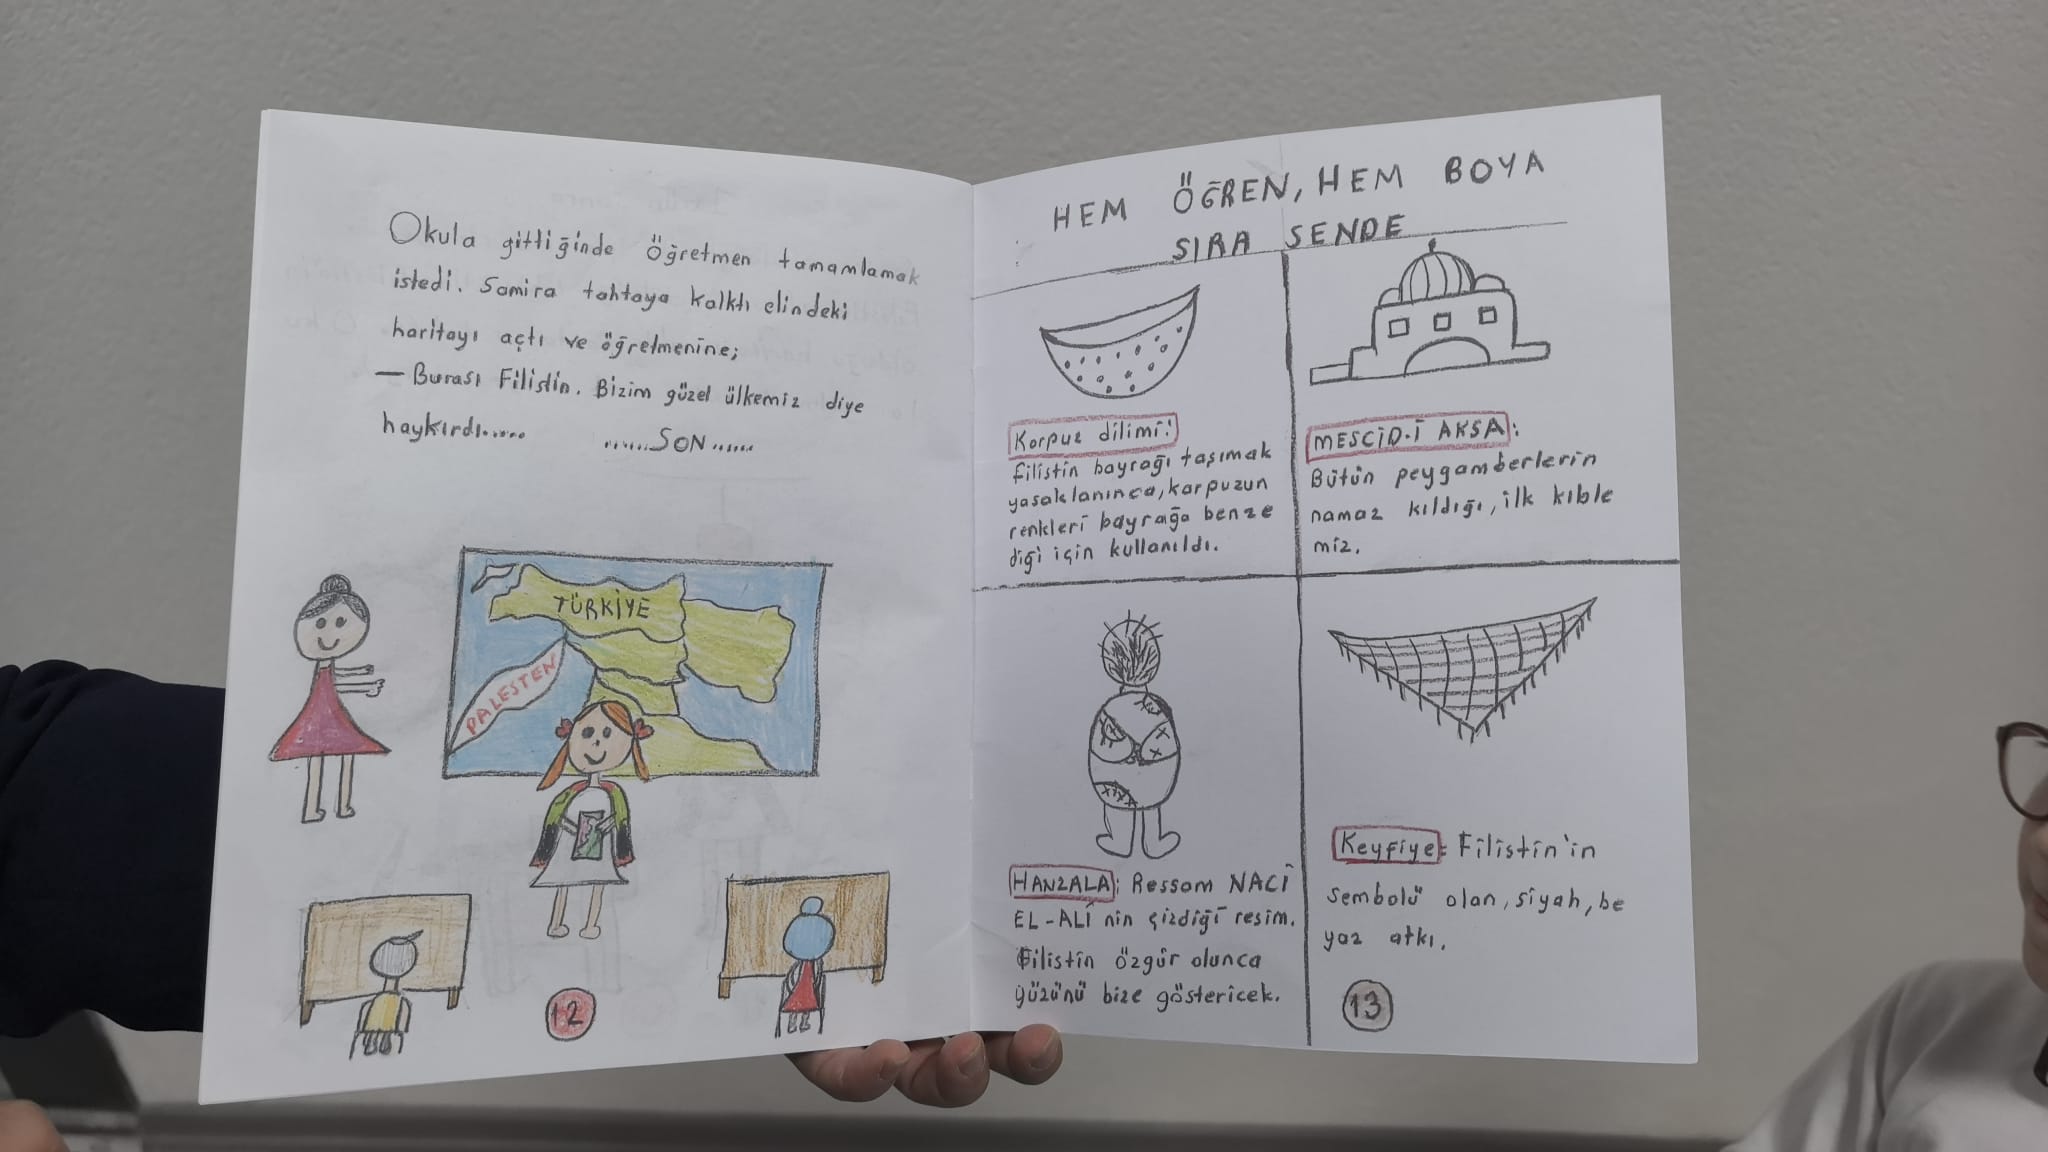 Okula gittiğinde öğretmen tamamlamak
istedi. Samira tahtaya kalktı elindeki
haritayı açtı ve öğretmenine;
— Burası Filistin. Bizim güzel ülkemiz diye
haykırdı.....
......SON......
TÜRKİYE
PALESTEN
12
HEM ÖĞREN, HEM BOYA
SIRA SENDE
Karpuz dilimi:
filistin bayrağı taşımak
yasaklanınca, karpuzun
renkleri bayrağa benze
diği için kullanıldı.
MESCİD-İ AKSA:
Bütün peygamberlerin
namaz kıldığı, ilk kıble
miz.
HANZALA: Ressam NACİ
EL-ALİ nin çizdiği resim.
Filistin özgür olunca
yüzünü bize göstericek.
Keyfiye: Filistin'in
sembolü olan, siyah, be
yaz atkı.
13